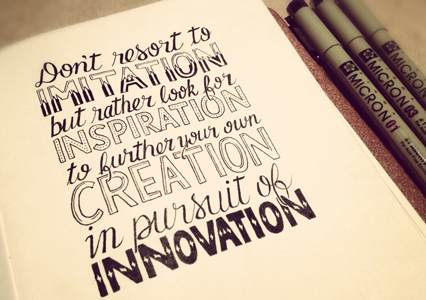 Don't resort to
IMITATION
but rather look for
INSPIRATION
to further your own
CREATION
in pursuit of
INNOVATION
MICRON 01
MICRON 03
MICRON